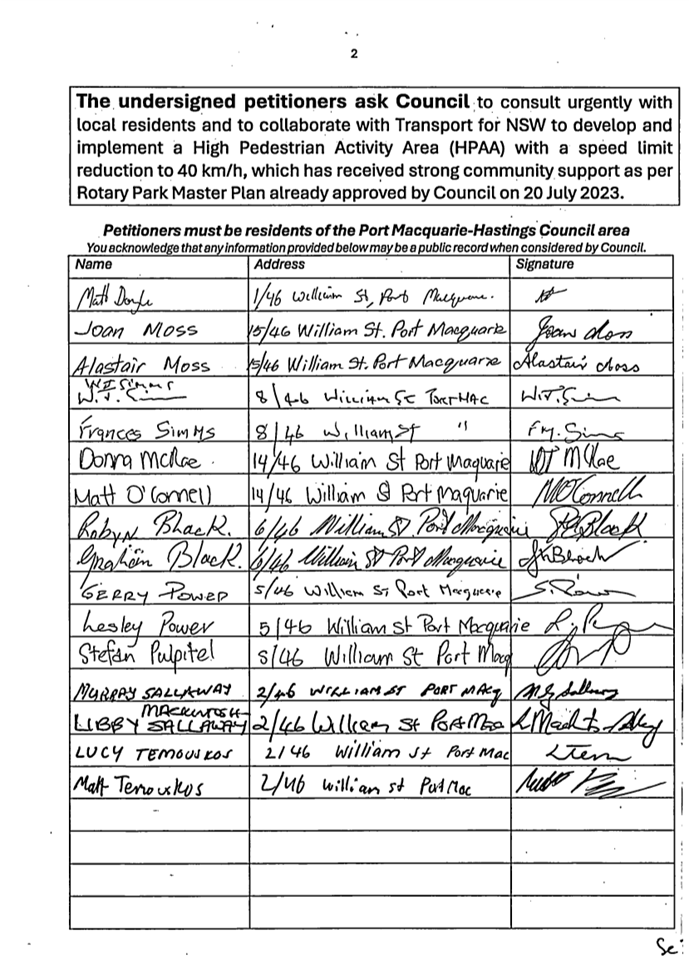 2
The undersigned petitioners ask Council to consult urgently with
local residents and to collaborate with Transport for NSW to develop and
implement a High Pedestrian Activity Area (HPAA) with a speed limit
reduction to 40 km/h, which has received strong community support as per
Rotary Park Master Plan already approved by Council on 20 July 2023.
Petitioners must be residents of the Port Macquarie-Hastings Council area
You acknowledge that any information provided below may be a public record when considered by Council.
Name Address Signature
Matt Doyle 1/46 William St, Port Macquarie.
Joan Moss 15/46 William St. Port Macquarie Joan Moss
Alastair Moss 15/46 William St. Port Macquarie Alastair Moss
WT Simms
W.T. 8/46 William St Port Mac W.T.
Frances Simms 8/46 William St " F.M. Simms
Donna McRae. 14/46 William St Port Maquarie DT McRae
Matt O'Connell 14/46 William St Port Maquarie MOConnell
Robyn Black. 6/46 William St Port Macquarie Black
Graham Black. 6/46 William St Port Macquarie Black
GERRY POWER 5/46 William St Port Macquarie
Lesley Power 5/46 William St Port Macquarie
Stefan Pulpitel 8/46 William St Port Macq
MURRAY SALLAWAY 2/46 WILLIAM ST PORT MACQ
MACKINTOSH-
LIBBY SALLAWAY 2/46 William St Port Mac
LUCY TEMOUSKOS 2/46 William St Port Mac LTem
Matt Temouskos 2/46 William st Port Mac